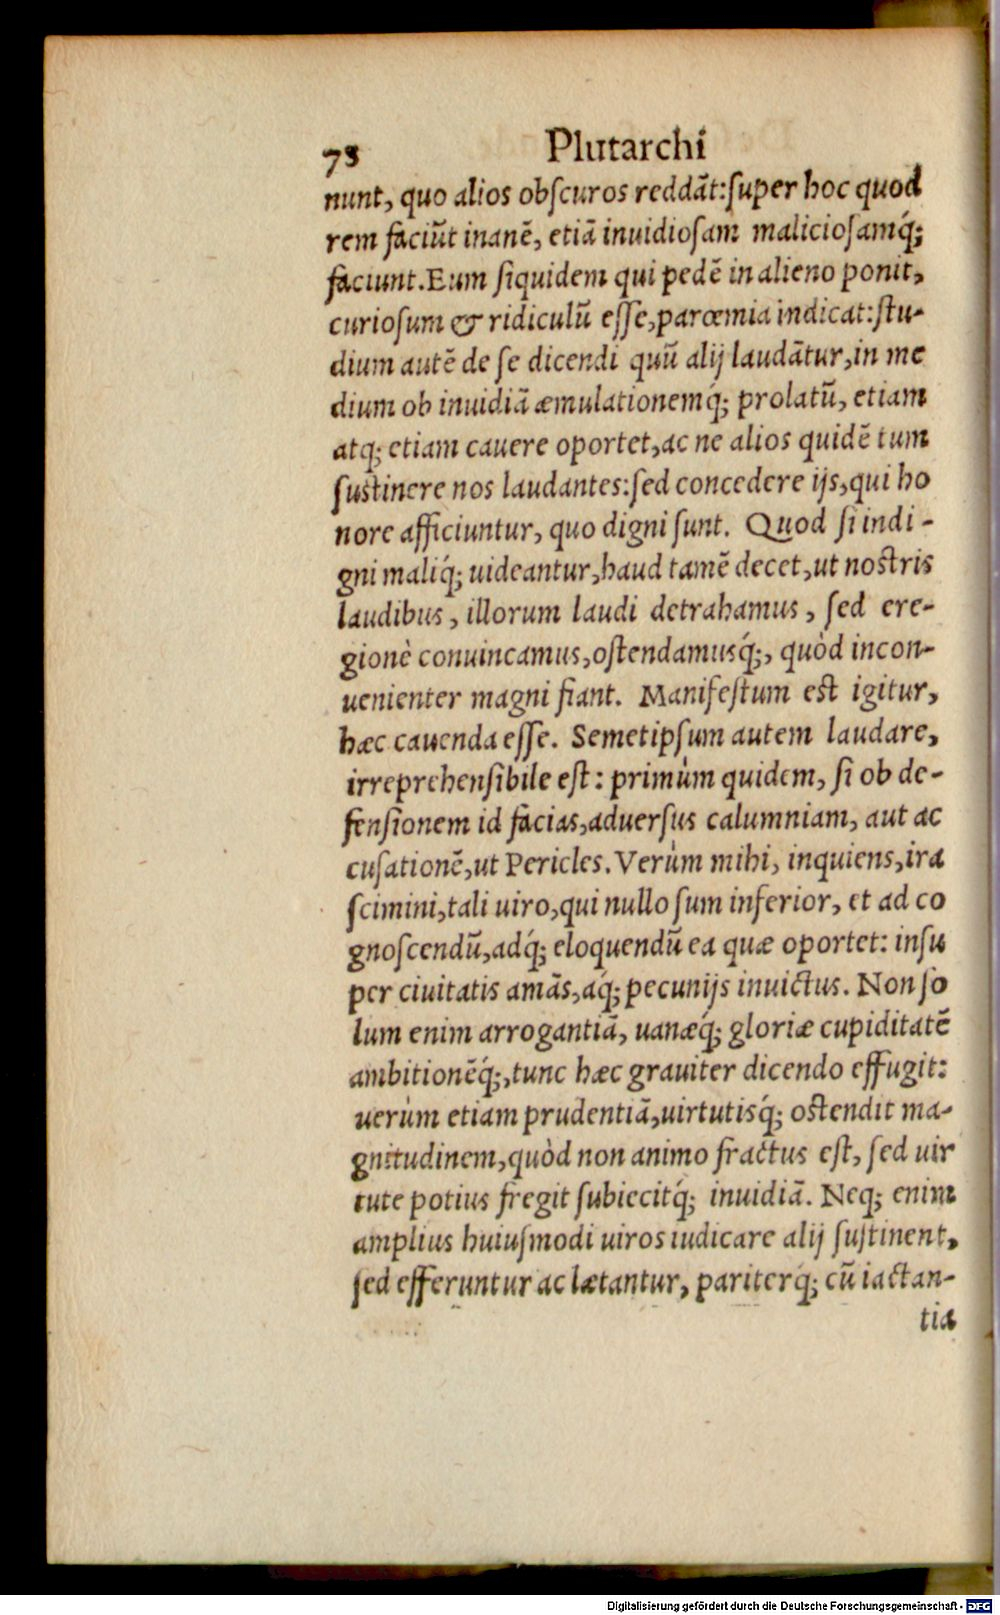 78 Plutarchi
nunt, quo alios obſcuros reddãt:ſuper hoc quod
rem faciũt inanẽ, etiã inuidioſam malicioſamq́;
faciunt. Eum ſiquidem qui pedẽ in alieno ponit,
curioſum & ridiculũ eſſe, parœmia indicat: ſtu-
dium autẽ de ſe dicendi quũ alij laudãtur, in me
dium ob inuidiã æmulationemq́; prolatũ, etiam
atq; etiam cauere oportet, ac ne alios quidẽ tum
ſuſtinere nos laudantes: ſed concedere ijs, qui ho
nore afficiuntur, quo digni ſunt. Quod ſi indi-
gni maliq́; uideantur, haud tamẽ decet, ut noſtris
laudibus, illorum laudi detrahamus, ſed ere-
gionè conuincamus, oſtendamusq́;, quòd incon-
uenienter magni fiant. Manifeſtum eſt igitur,
hæc cauenda eſſe. Semetipſum autem laudare,
irreprehenſibile eſt: primùm quidem, ſi ob de-
fenſionem id facias, aduerſus calumniam, aut ac
cuſationẽ, ut Pericles. Verùm mihi, inquiens, ira
ſcimini, tali uiro, qui nullo ſum inferior, et ad co
gnoſcendũ, adq́; eloquendũ ea quæ oportet: inſu
per ciuitatis amãs, aq́; pecunijs inuictus. Non ſo
lum enim arrogantiã, uanæq́; gloriæ cupiditatẽ
ambitionẽq́;, tunc hæc grauiter dicendo effugit:
uerùm etiam prudentiã, uirtutisq́; oſtendit ma-
gnitudinem, quòd non animo fractus eſt, ſed uir
tute potius fregit ſubiecitq́; inuidiã. Neq; enim
amplius huiuſmodi uiros iudicare alij ſuſtinent,
ſed efferuntur ac lætantur, pariterq́; cũ iactan-
tia
Digitalisierung gefördert durch die Deutsche Forschungsgemeinschaft - DFG